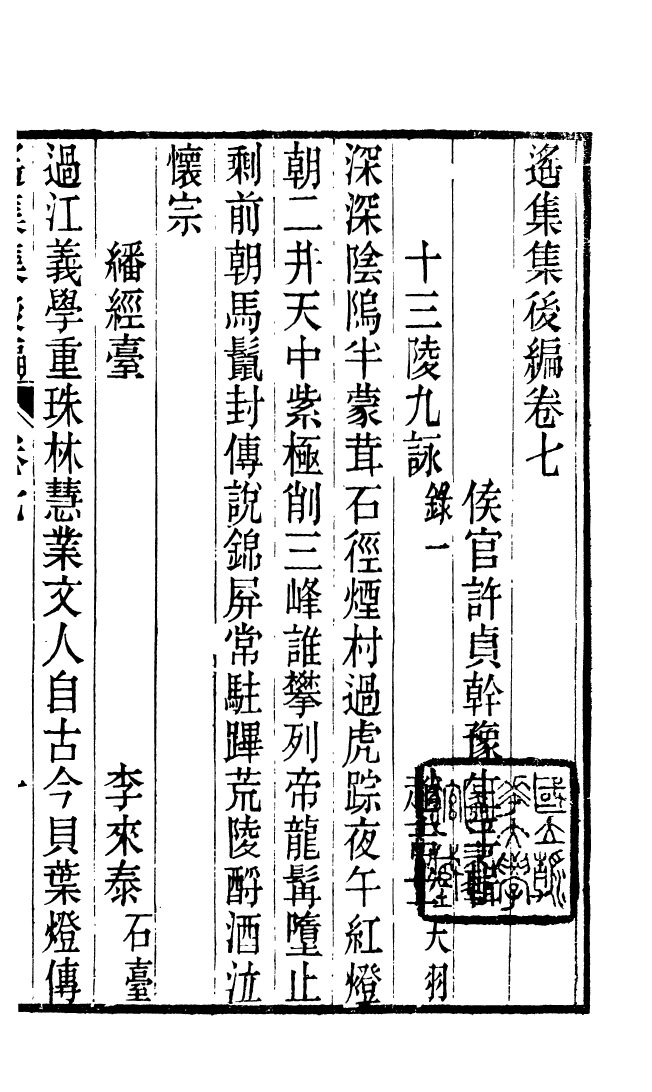 遙集集後編卷七
侯官許貞幹豫生
十三陵九詠錄一 大羽
深深陰隖半蒙茸石徑煙村過虎踪夜午紅燈
朝二井天中紫極削三峰誰攀列帝龍髯墮止
剩前朝馬鬣封傳說錦屏常駐蹕荒陵酹酒泣
懷宗
繙經臺 李來泰石臺
過江義學重珠林慧業文人自古今貝葉燈傳
遙集集後編 卷七 一